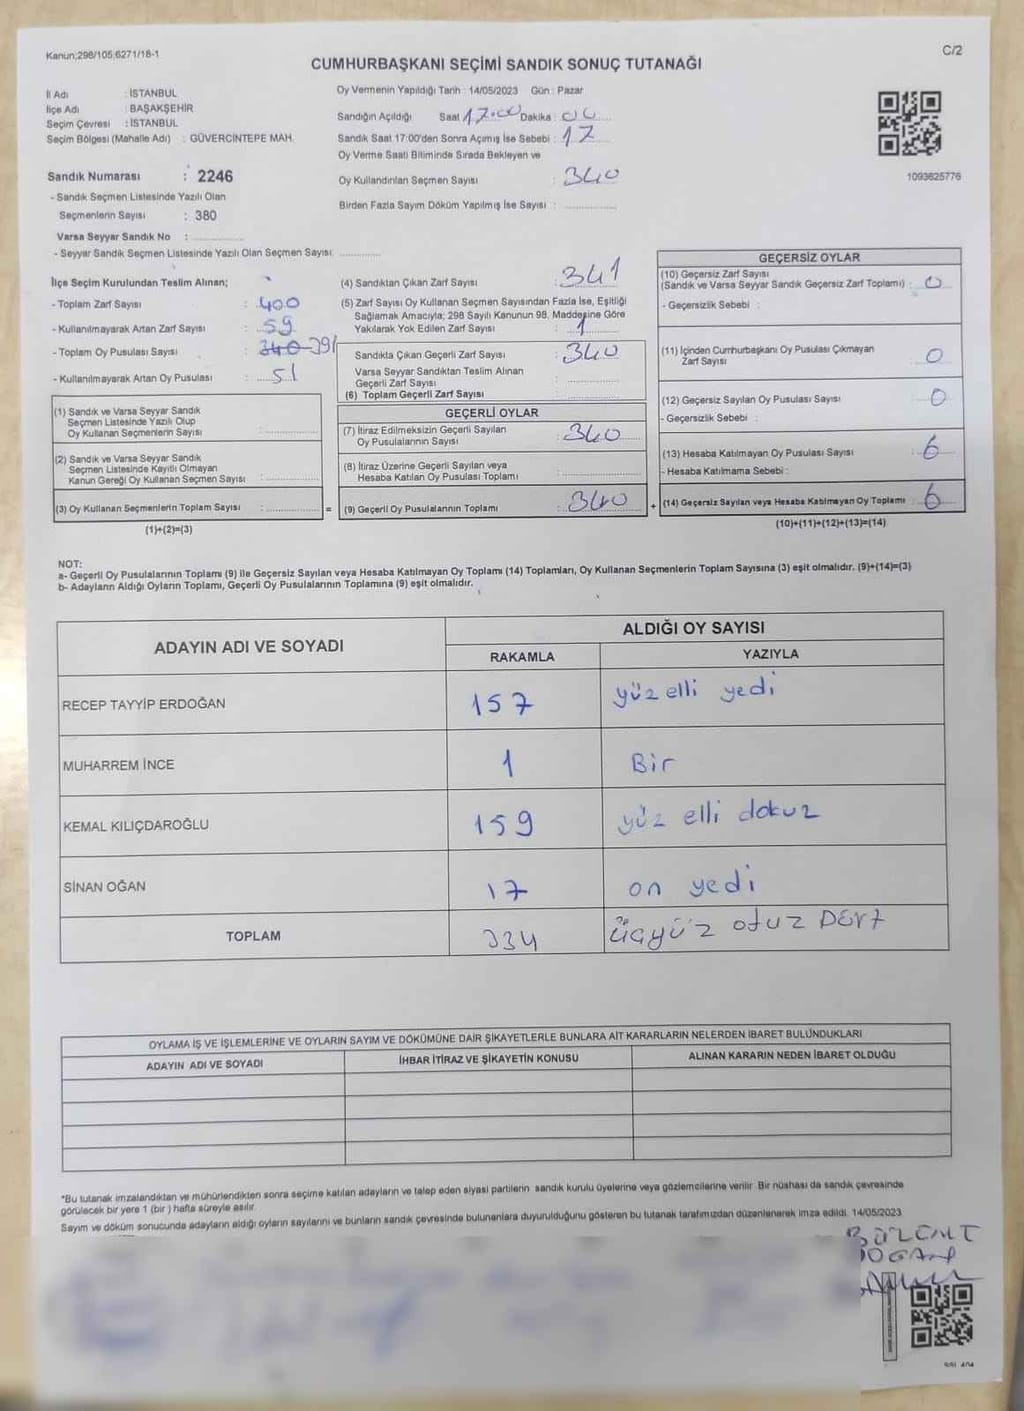 Kanun;298/105;6271/18-1
C/2
CUMHURBAŞKANI SEÇİMİ SANDIK SONUÇ TUTANAĞI
İl Adı : İSTANBUL
İlçe Adı : BAŞAKŞEHİR
Seçim Çevresi : İSTANBUL
Seçim Bölgesi (Mahalle Adı) : GÜVERCİNTEPE MAH.
Sandık Numarası : 2246
- Sandık Seçmen Listesinde Yazılı Olan
Seçmenlerin Sayısı : 380
Varsa Seyyar Sandık No :
- Seyyar Sandık Seçmen Listesinde Yazılı Olan Seçmen Sayısı:
Oy Vermenin Yapıldığı Tarih : 14/05/2023 Gün : Pazar
Sandığın Açıldığı Saat 17:00 Dakika :
Sandık Saat 17:00'den Sonra Açımış İse Sebebi : 17
Oy Verme Saati Bitiminde Sırada Bekleyen ve
Oy Kullandırılan Seçmen Sayısı : 340
Birden Fazla Sayım Döküm Yapılmış İse Sayısı :
1093625776
İlçe Seçim Kurulundan Teslim Alınan;
- Toplam Zarf Sayısı : 400
- Kullanılmayarak Artan Zarf Sayısı : 59
- Toplam Oy Pusulası Sayısı : 340 391
- Kullanılmayarak Artan Oy Pusulası : 51
(1) Sandık ve Varsa Seyyar Sandık
Seçmen Listesinde Yazılı Olup
Oy Kullanan Seçmenlerin Sayısı :
(2) Sandık ve Varsa Seyyar Sandık
Seçmen Listesinde Kayıtlı Olmayan
Kanun Gereği Oy Kullanan Seçmen Sayısı :
(3) Oy Kullanan Seçmenlerin Toplam Sayısı :
(1)+(2)=(3)
=
(4) Sandıktan Çıkan Zarf Sayısı : 341
(5) Zarf Sayısı Oy Kullanan Seçmen Sayısından Fazla İse, Eşitliği
Sağlamak Amacıyla; 298 Sayılı Kanunun 98. Maddesine Göre
Yakılarak Yok Edilen Zarf Sayısı : 1
Sandıkta Çıkan Geçerli Zarf Sayısı : 340
Varsa Seyyar Sandıktan Teslim Alınan
Geçerli Zarf Sayısı :
(6) Toplam Geçerli Zarf Sayısı :
GEÇERLİ OYLAR
(7) İtiraz Edilmeksizin Geçerli Sayılan
Oy Pusulalarının Sayısı : 340
(8) İtiraz Üzerine Geçerli Sayılan veya
Hesaba Katılan Oy Pusulası Toplamı :
(9) Geçerli Oy Pusulalarının Toplamı : 340
+
GEÇERSİZ OYLAR
(10) Geçersiz Zarf Sayısı
(Sandık ve Varsa Seyyar Sandık Geçersiz Zarf Toplamı) : 0
- Geçersizlik Sebebi :
(11) İçinden Cumhurbaşkanı Oy Pusulası Çıkmayan
Zarf Sayısı : 0
(12) Geçersiz Sayılan Oy Pusulası Sayısı : 0
- Geçersizlik Sebebi :
(13) Hesaba Katılmayan Oy Pusulası Sayısı : 6
- Hesaba Katılmama Sebebi :
(14) Geçersiz Sayılan veya Hesaba Katılmayan Oy Toplamı : 6
(10)+(11)+(12)+(13)=(14)
NOT:
a- Geçerli Oy Pusulalarının Toplamı (9) ile Geçersiz Sayılan veya Hesaba Katılmayan Oy Toplamı (14) Toplamları, Oy Kullanan Seçmenlerin Toplam Sayısına (3) eşit olmalıdır. (9)+(14)=(3)
b- Adayların Aldığı Oyların Toplamı, Geçerli Oy Pusulalarının Toplamına (9) eşit olmalıdır.
ADAYIN ADI VE SOYADI ALDIĞI OY SAYISI
RAKAMLA YAZIYLA
RECEP TAYYİP ERDOĞAN 157 yüz elli yedi
MUHARREM İNCE 1 Bir
KEMAL KILIÇDAROĞLU 159 yüz elli dokuz
SİNAN OĞAN 17 on yedi
TOPLAM 334 üçyüz otuz Dört
OYLAMA İŞ VE İŞLEMLERİNE VE OYLARIN SAYIM VE DÖKÜMÜNE DAİR ŞİKAYETLERLE BUNLARA AİT KARARLARIN NELERDEN İBARET BULUNDUKLARI
ADAYIN ADI VE SOYADI İHBAR İTİRAZ VE ŞİKAYETİN KONUSU ALINAN KARARIN NEDEN İBARET OLDUĞU
*Bu tutanak imzalandıktan ve mühürlendikten sonra seçime katılan adayların ve talep eden siyasi partilerin sandık kurulu üyelerine veya gözlemcilerine verilir. Bir nüshası da sandık çevresinde
görülecek bir yere 1 (bir) hafta süreyle asılır.
Sayım ve döküm sonucunda adayların aldığı oyların sayılarını ve bunların sandık çevresinde bulunanlara duyurulduğunu gösteren bu tutanak tarafımızdan düzenlenerek imza edildi. 14/05/2023
BÜLENT
DOĞAN